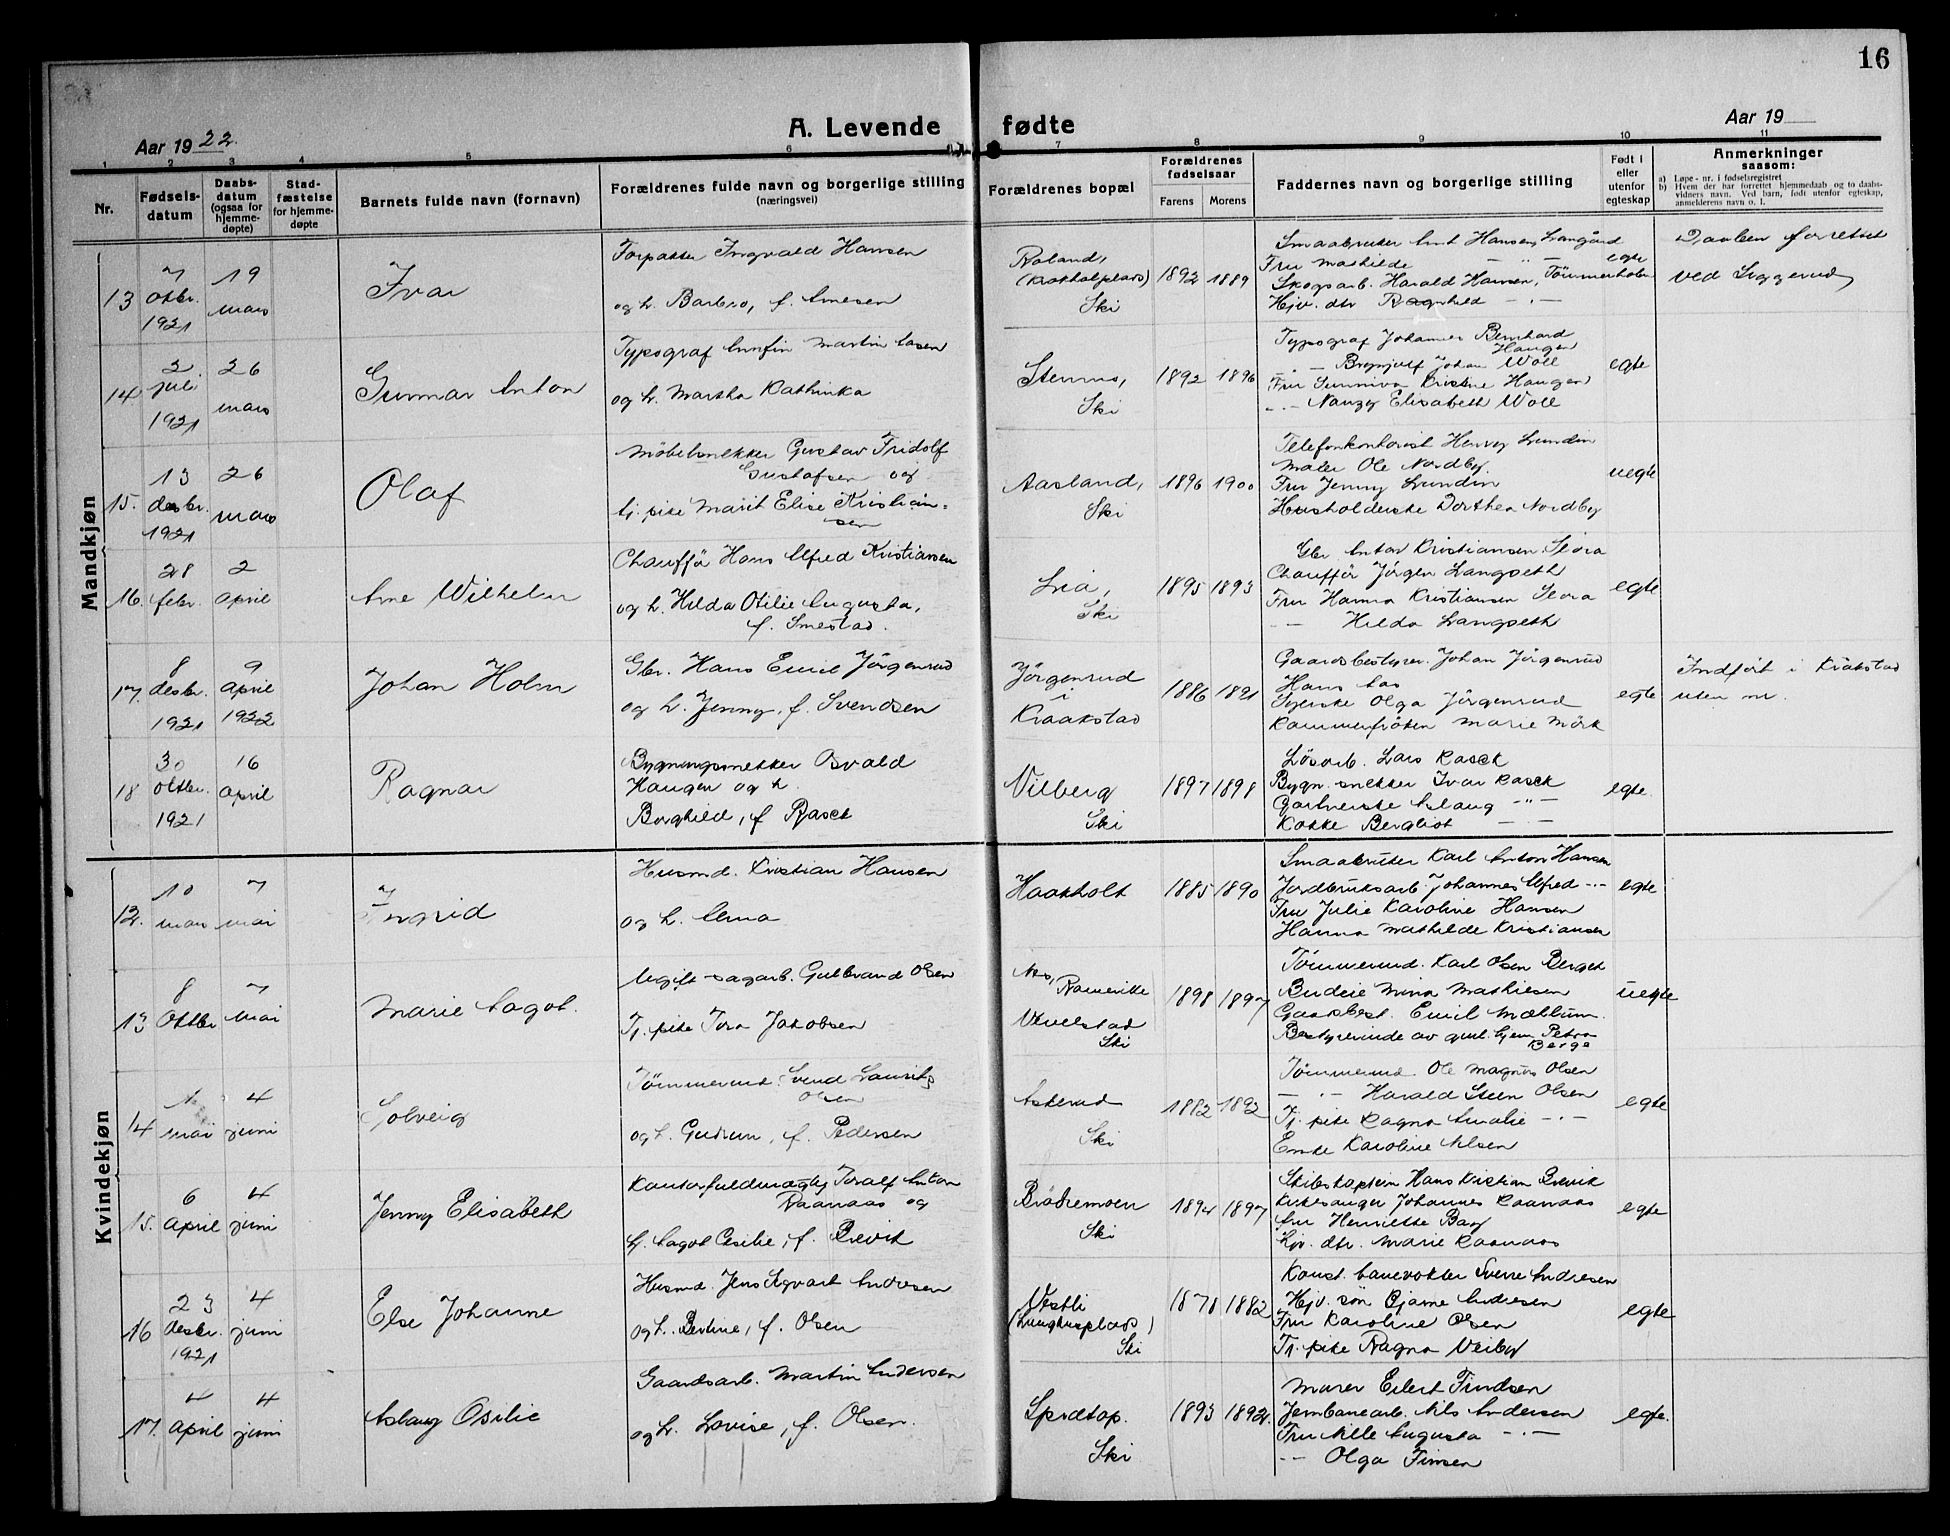 16
A. Levende fødte
Aar 1922.
Aar 19
1 2 3 4 5 6 7 8 9 10 11
Nr.
Fødsels-
datum
Daabs-
datum
(ogsaa for
hjemme-
døpte)
Stad-
fæstelse
for hjemme-
døpte
Barnets fulde navn (fornavn)
Forældrenes fulde navn og borgerlige stilling
(næringsvei)
Forældrenes bopæl
Forældrenes
fødselsaar
Farens Morens
Faddernes navn og borgerlige stilling
Født i
eller
utenfor
egteskap
Anmerkninger
saasom:
a) Løpe-nr. i fødselsregistret
b) Hvem der har forrettet hjemmedaab og to daabs-
vidners navn. Ved barn, født utenfor egteskap,
anmelderens navn o. l.
Mandkjøn
13
7 oktbr. 1921
19 mars
Ivar
Ingvald Hansen
og h. Barbro, f. Arnesen
Roland,
Ski
1892 1889
Smaabruker Hansen, Langård
Fru Mathilde — " —
Skogsarb. Harald Hansen, Tömmerholen
Hjv. dtr Ragnhild — " —
egte
Daaben forrettet
ved Siggerud
14
2 juli 1921
26 mars
Gunnar Anton
Typograf Arnfin Martin Aasen
og h. Martha Kathinka
Stenmo,
Ski
1892 1896
Typograf Johannes Bernhard
Haugen
— " — Brynjulf Johan Woll
Fru Sunniva Kristine Haugen
— " — Nanzy Elisabeth Woll
egte
15.
13 desbr. 1921
26 mars
Olaf
Möbelsnekker Gustav Fridolf
Gustafsen og
tj. pike Marit Elise Kristian-
sen
Aasland,
Ski
1896 1900
Telefonkontorist Henry Lundin
Maler Ole Nordby.
Fru Jenny Lundin
Husholderske Dorthea Nordby
uegte
16.
28 febr.
2 april
Arne Wilhelm
Chaufför Hans Alfred Kristiansen
og h. Hilda Otilie Augusta,
f. Smestad.
Lia,
Ski
1895 1893
Gbr. Anton Kristiansen Slora
Chaufför Jörgen Langseth
Fru Hanna Kristiansen Slora
— " — Hilda Langseth
egte
17.
8 desbr. 1921
9 april 1922
Johan Holm
Gbr. Hans Emil Jörgenrud
og h. Jenny, f. Svendsen
Jörgenrud
i
Kraakstad
1886 1891
Gaardsbestyrer Johan Jörgenrud
Hans Aas
Syerske Olga Jörgenrud
Kammerfröken Marie Mörk
egte
Indfört i Kraakstad
uten nr.
18
30 oktbr. 1921
16 april
Ragnar
Bygningssnekker Osvald
Haugen og h.
Borghild, f. Rasck
Vilberg
Ski
1897 1898
Lösarb. Lars Rasck
Bygn. snekker Ivar Rasck
Gartnerske Aslaug — " —
Kokke Bergliot — " —
egte.
Kvindekjøn
12.
10 mars
7 mai
Ingrid
Husmd. Kristian Hansen
og h. Anna
Haakholt
1885 1890
Smaabruker Karl Anton Hansen
Jordbruksarb. Johannes Alfred — " —
Fru Julie Karoline Hansen
Hanna Mathilde Kristiansen
egte
13
8 oktbr
7 mai
Marie Aagot.
Ugift sagarb. Gulbrand Olsen
Tj. pike Tora Jakobsen
Aas,
Vevelstad
Ski
1898 1897
Tömmermd. Karl Olsen Berget
Budeie Mina Mathiesen
Gaardsbest. Emil Mællum.
Bestyrerinde av gml. hjem Petra
Berge
uegte
14
1 mai
4 juni
Solveig
Tömmermd. Svend Laurits
Olsen
og h. Gudrun, f. Pedersen
Askerud
Ski
1882 1892
Tömmermd. Ole Magnus Olsen
— " — Harald Steen Olsen
Tj. pike Ragna Amalie — " —
Enke Karoline Nilsen
egte
15.
6 april
4 juni
Jenny Elisabeth
Kontorfuldmægtig Toralf Anton
Raanaas og
h. Aagot Cecilie, f. Brevik
Brödremoen
Ski
1894 1897
Skibskaptein Hans Kristian Brevik
Kirkesanger Johannes Raanaas
Fru Henriette Berg
Hjv. dtr. Marie Raanaas
egte
16
23 desbr. 1921
4 juni
Else Johanne
Husmd. Jens Sigvart Andresen
og h. Bertine, f. Olsen
Vestli
(Langhusplads)
Ski
1878 1882
Konst. banevokter Sverre Andresen
Hjv. sön Bjarne Andresen
Fru Karoline Olsen
Tj. pike Ragna Veiby
egte
17.
4 april
4 juni
Aslaug Osilie
Gaardsarb. Martin Andersen
og h. Lovise, f. Olsen.
Ski
1893 1892.
Murer Eilert Findsen
Jernbanearb. Nils Andersen
Fru Nille Augusta — " —
— " — Olga Finsen
egte.